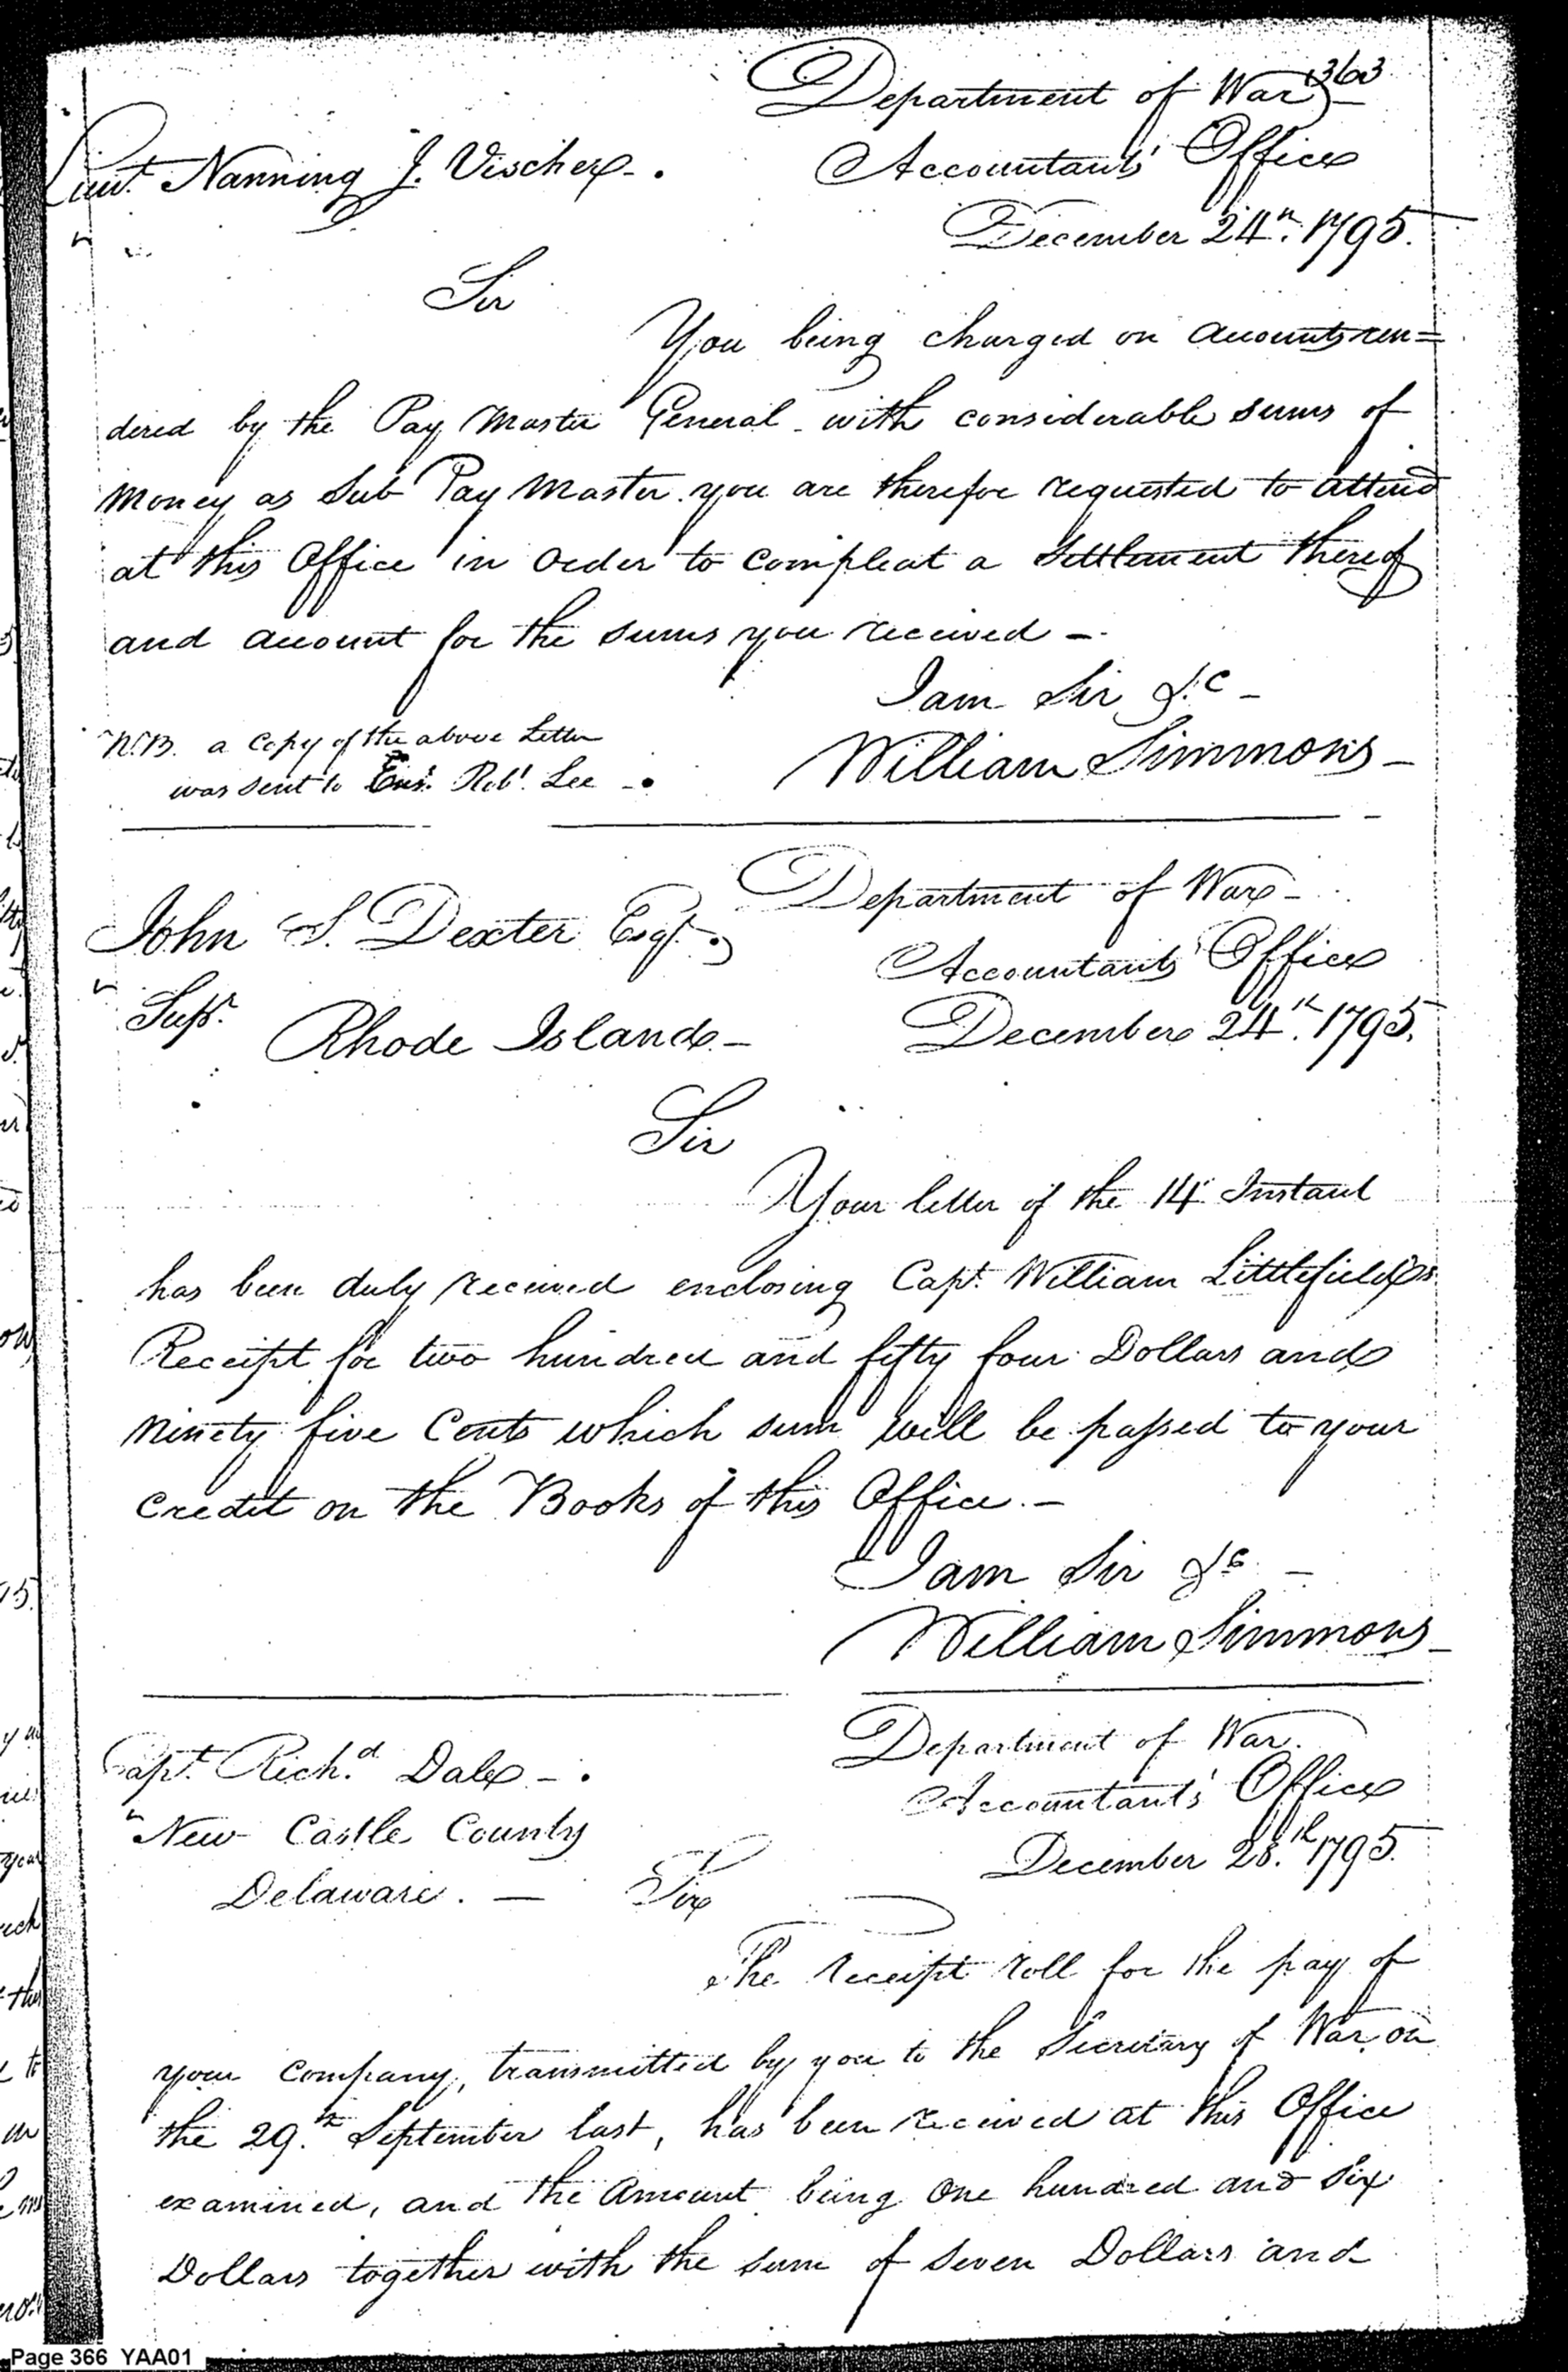 363
Department of War
Lieut. Nanning J. Vischer.
Accountants' Office
December 24th. 1795.
Sir
You being charged on accounts ren=
dered by the Pay Master General with considerable sums of
money as Sub Pay Master you are therefore requested to attend
at this Office in order to compleat a Settlement thereof
and account for the sums you received —
I am Sir &c —
N.B. a Copy of the above Letter
was sent to Ens. Robt. Lee
William Simmons —
Department of War —
John S. Dexter Esqr.
Accountants' Office
Supr.
Rhode Island —
December 24th. 1795.
Sir
Your letter of the 14 Instant
has been duly received enclosing Capt. William Littlefields
Receipt for two hundred and fifty four Dollars and
ninety five Cents which sum will be passed to your
credit on the Books of this Office. —
I am Sir &c —
William Simmons —
Department of War.
Capt. Richd. Dale — .
Accountants' Office
New Castle County
December 28.th 1795.
Delaware. — Sir
The receipt roll for the pay of
your company, transmitted by you to the Secretary of War, on
the 29.th September last, has been received at this Office
examined, and the Amount being One hundred and Six
Dollars together with the sum of Seven Dollars and
Page 366 YAA01